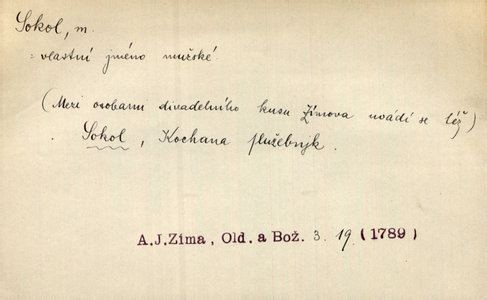 Sokol, m.
= vlastní jméno mužské.
(Mezi osobami divadelního kusu Zímova uvádí se též)
Sokol, Kochana služebnjk.
A.J.Zíma, Old. a Bož. 3. 19. (1789)